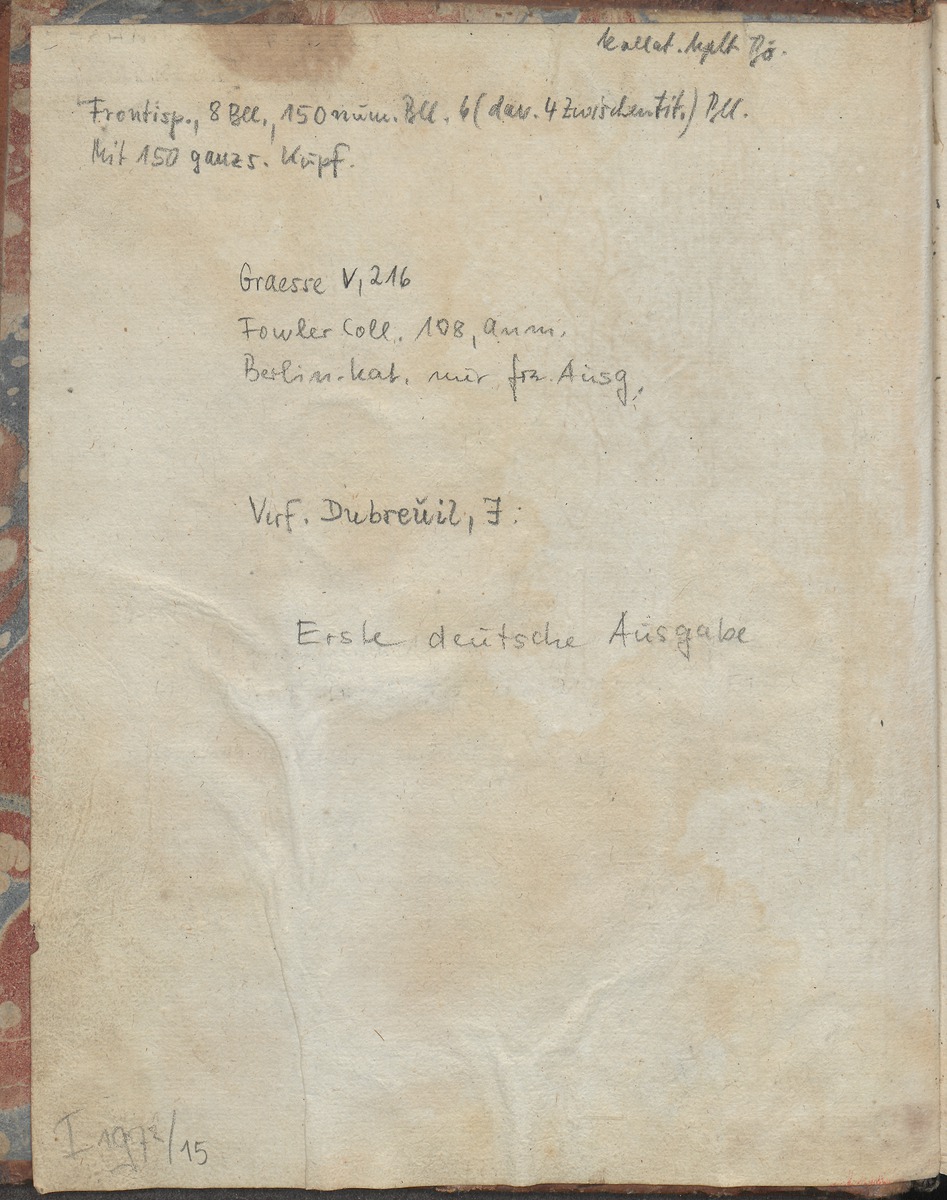 kollat. kplt. Bö.
Frontisp., 8 Bll., 150 num. Bll. 6 (dav. 4 Zwischentit.) Bll.
Mit 150 ganzs. Kupf.
Graesse V, 216
Fowler Coll. 108, Anm.
Berlin. Kat. nur frz. Ausg.
Verf. Dubreuil, J.
Erste deutsche Ausgabe
I 1972/15